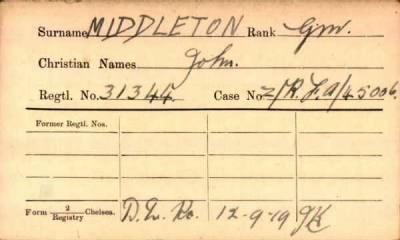 Surname MIDDLETON Rank Gnr.
Christian Names John.
Regtl. No. 31344. Case No. 2/R.F.A/45006.
Former Regtl. Nos.
Form 2/Registry Chelsea. D.L. Ro. 12-9-19